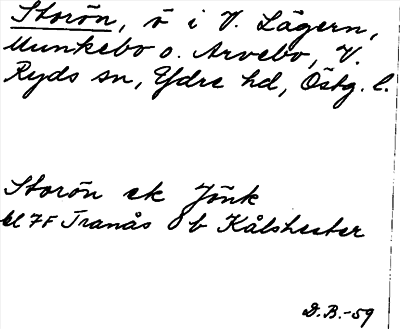 Storön, ö i V. Lägern,
Munkebo o. Arvebo, V.
Ryds sn, Ydre hd, Östg. l.
Storön ek Jönk
bl 7F Tranås 8b Kålshester
D.B.-59